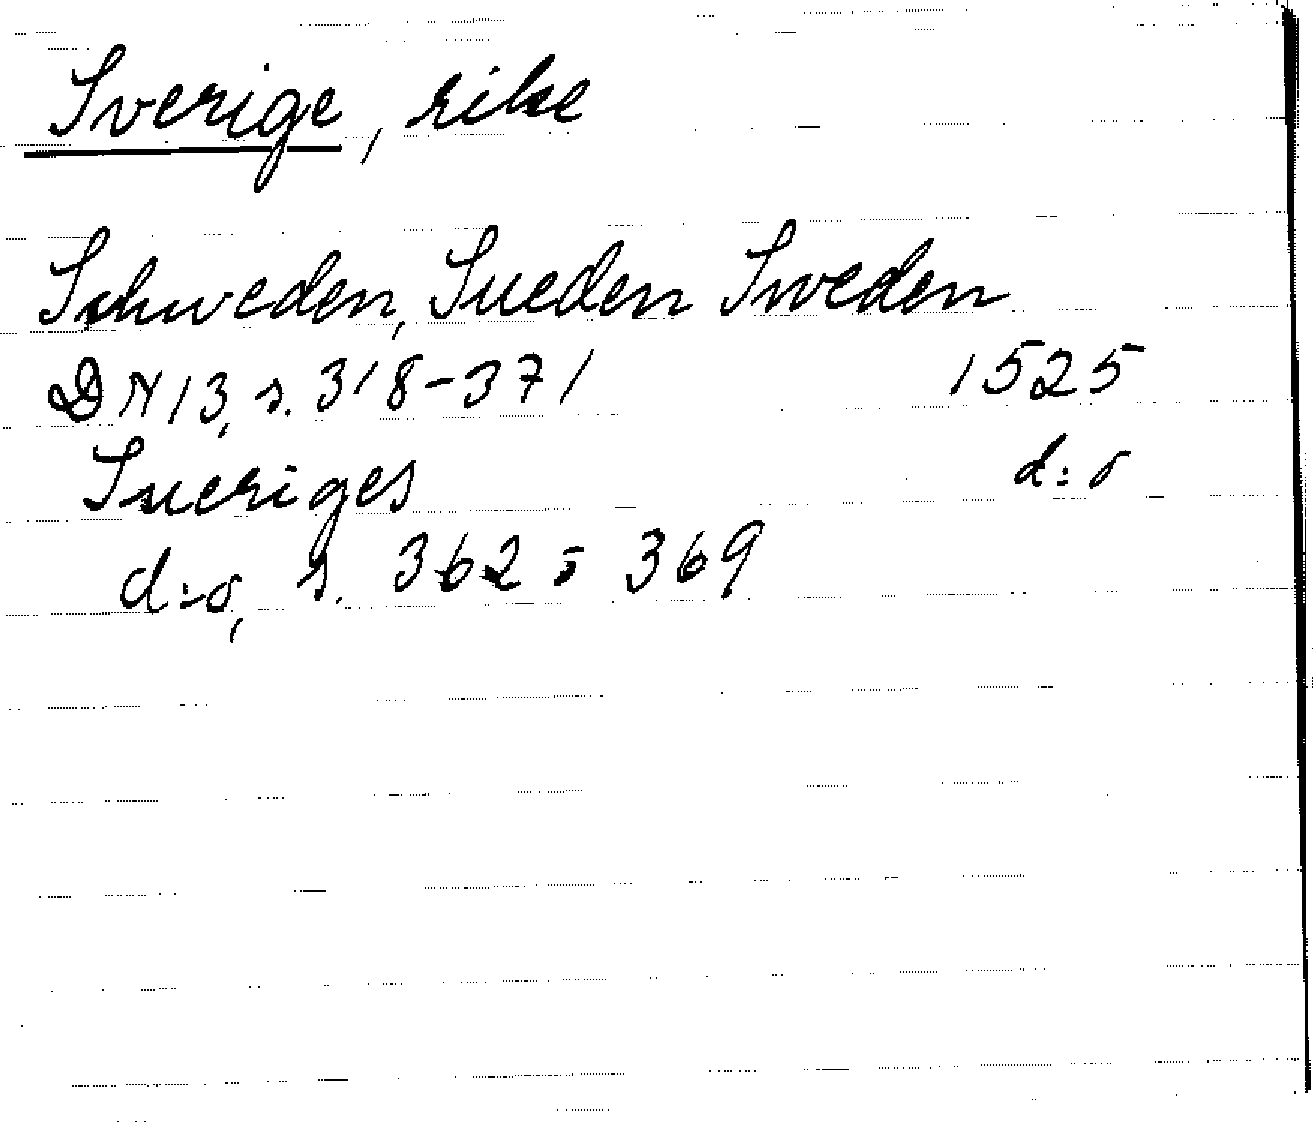 Sverige, rike
Schweden, Sueden Sweden
DN 13, s. 318-371 1525
Sueriges d:o
d:o, s. 362 o 369